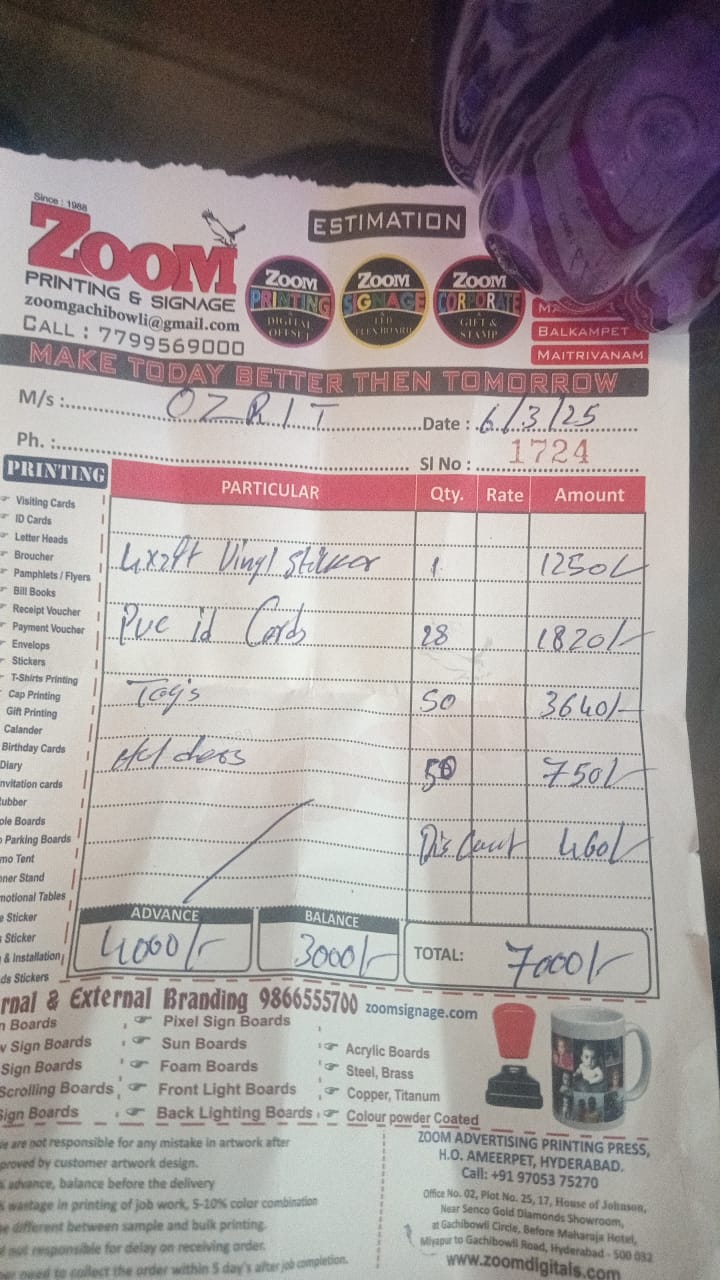 Since : 1988
ZOOM
PRINTING & SIGNAGE
zoomgachibowli@gmail.com
CALL : 7799569000
ESTIMATION
ZOOM PRINTING DIGITAL OFFSET
ZOOM SIGNAGE LED FLEX BOARD
ZOOM CORPORATE GIFT & STAMP
BALKAMPET
MAITRIVANAM
MAKE TODAY BETTER THEN TOMORROW
M/s : OZRIT Date : 6/3/25
Ph. : Sl No : 1724
PRINTING PARTICULAR Qty. Rate Amount
4x2ft Vinyl Sticker 1 1250/-
Pvc id Cards 28 1820/-
Tag's 50 3640/-
Holders 50 750/-
Discount 460/-
Visiting Cards
ID Cards
Letter Heads
Broucher
Pamphlets / Flyers
Bill Books
Receipt Voucher
Payment Voucher
Envelops
Stickers
T-Shirts Printing
Cap Printing
Gift Printing
Calander
Birthday Cards
Diary
nvitation cards
ubber
ole Boards
Parking Boards
mo Tent
ner Stand
motional Tables
e Sticker
Sticker
& Installation
ds Stickers
ADVANCE BALANCE
4000/- 3000/- TOTAL: 7000/-
rnal & External Branding 9866555700 zoomsignage.com
n Boards
w Sign Boards
Sign Boards
Scrolling Boards
Sign Boards
Pixel Sign Boards
Sun Boards
Foam Boards
Front Light Boards
Back Lighting Boards
Acrylic Boards
Steel, Brass
Copper, Titanum
Colour powder Coated
e are not responsible for any mistake in artwork after
proved by customer artwork design.
advance, balance before the delivery
wastage in printing of job work, 5-10% color combination
be different between sample and bulk printing.
not responsible for delay on receiving order.
need to collect the order within 5 day's after job completion.
ZOOM ADVERTISING PRINTING PRESS,
H.O. AMEERPET, HYDERABAD.
Call: +91 97053 75270
Office No. 02, Plot No. 25, 17, House of Johnson,
Near Senco Gold Diamonds Showroom,
at Gachibowli Circle, Before Maharaja Hotel,
Miyapur to Gachibowli Road, Hyderabad - 500 032
www.zoomdigitals.com